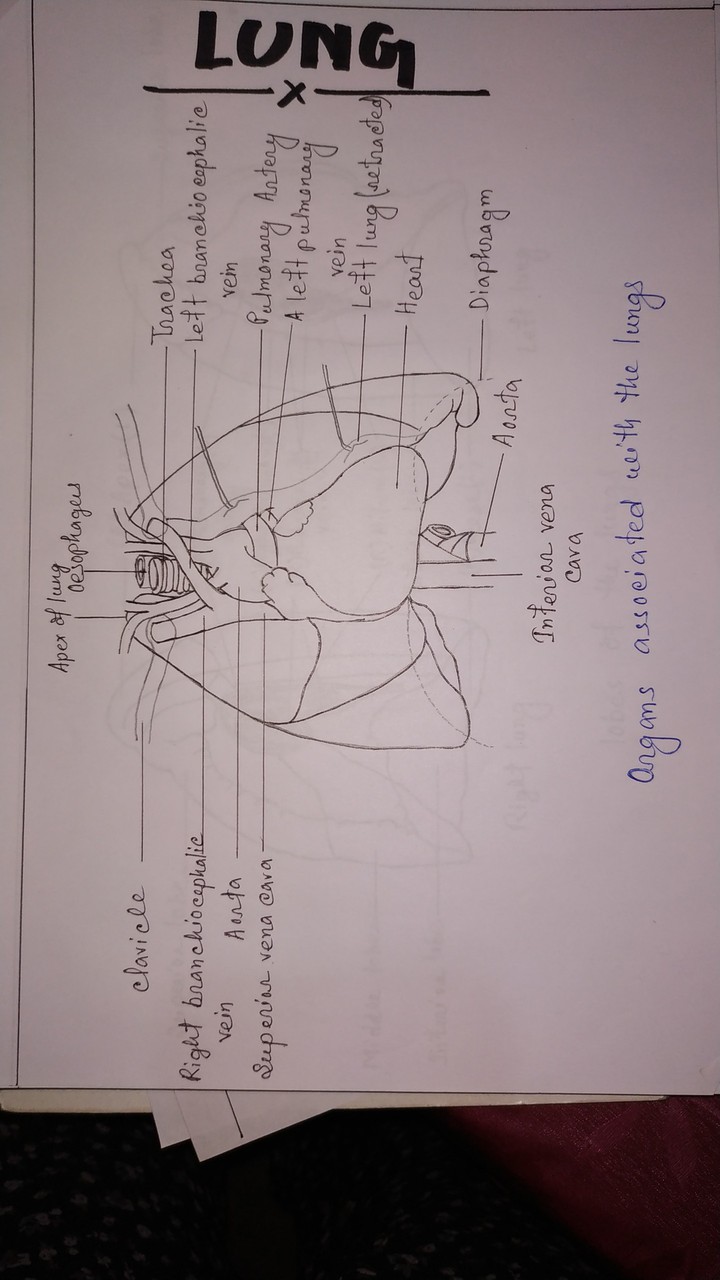 LUNG
x
Apex of lung
Oesophagus
Trachea
Left branchiocephalic
vein
Pulmonary Artery
A left pulmonary
vein
Left lung (retracted)
Heart
Diaphragm
Aorta
Inferior vena
cava
Clavicle
Right branchiocephalic
vein
Aorta
Superior vena cava
Organs associated with the lungs